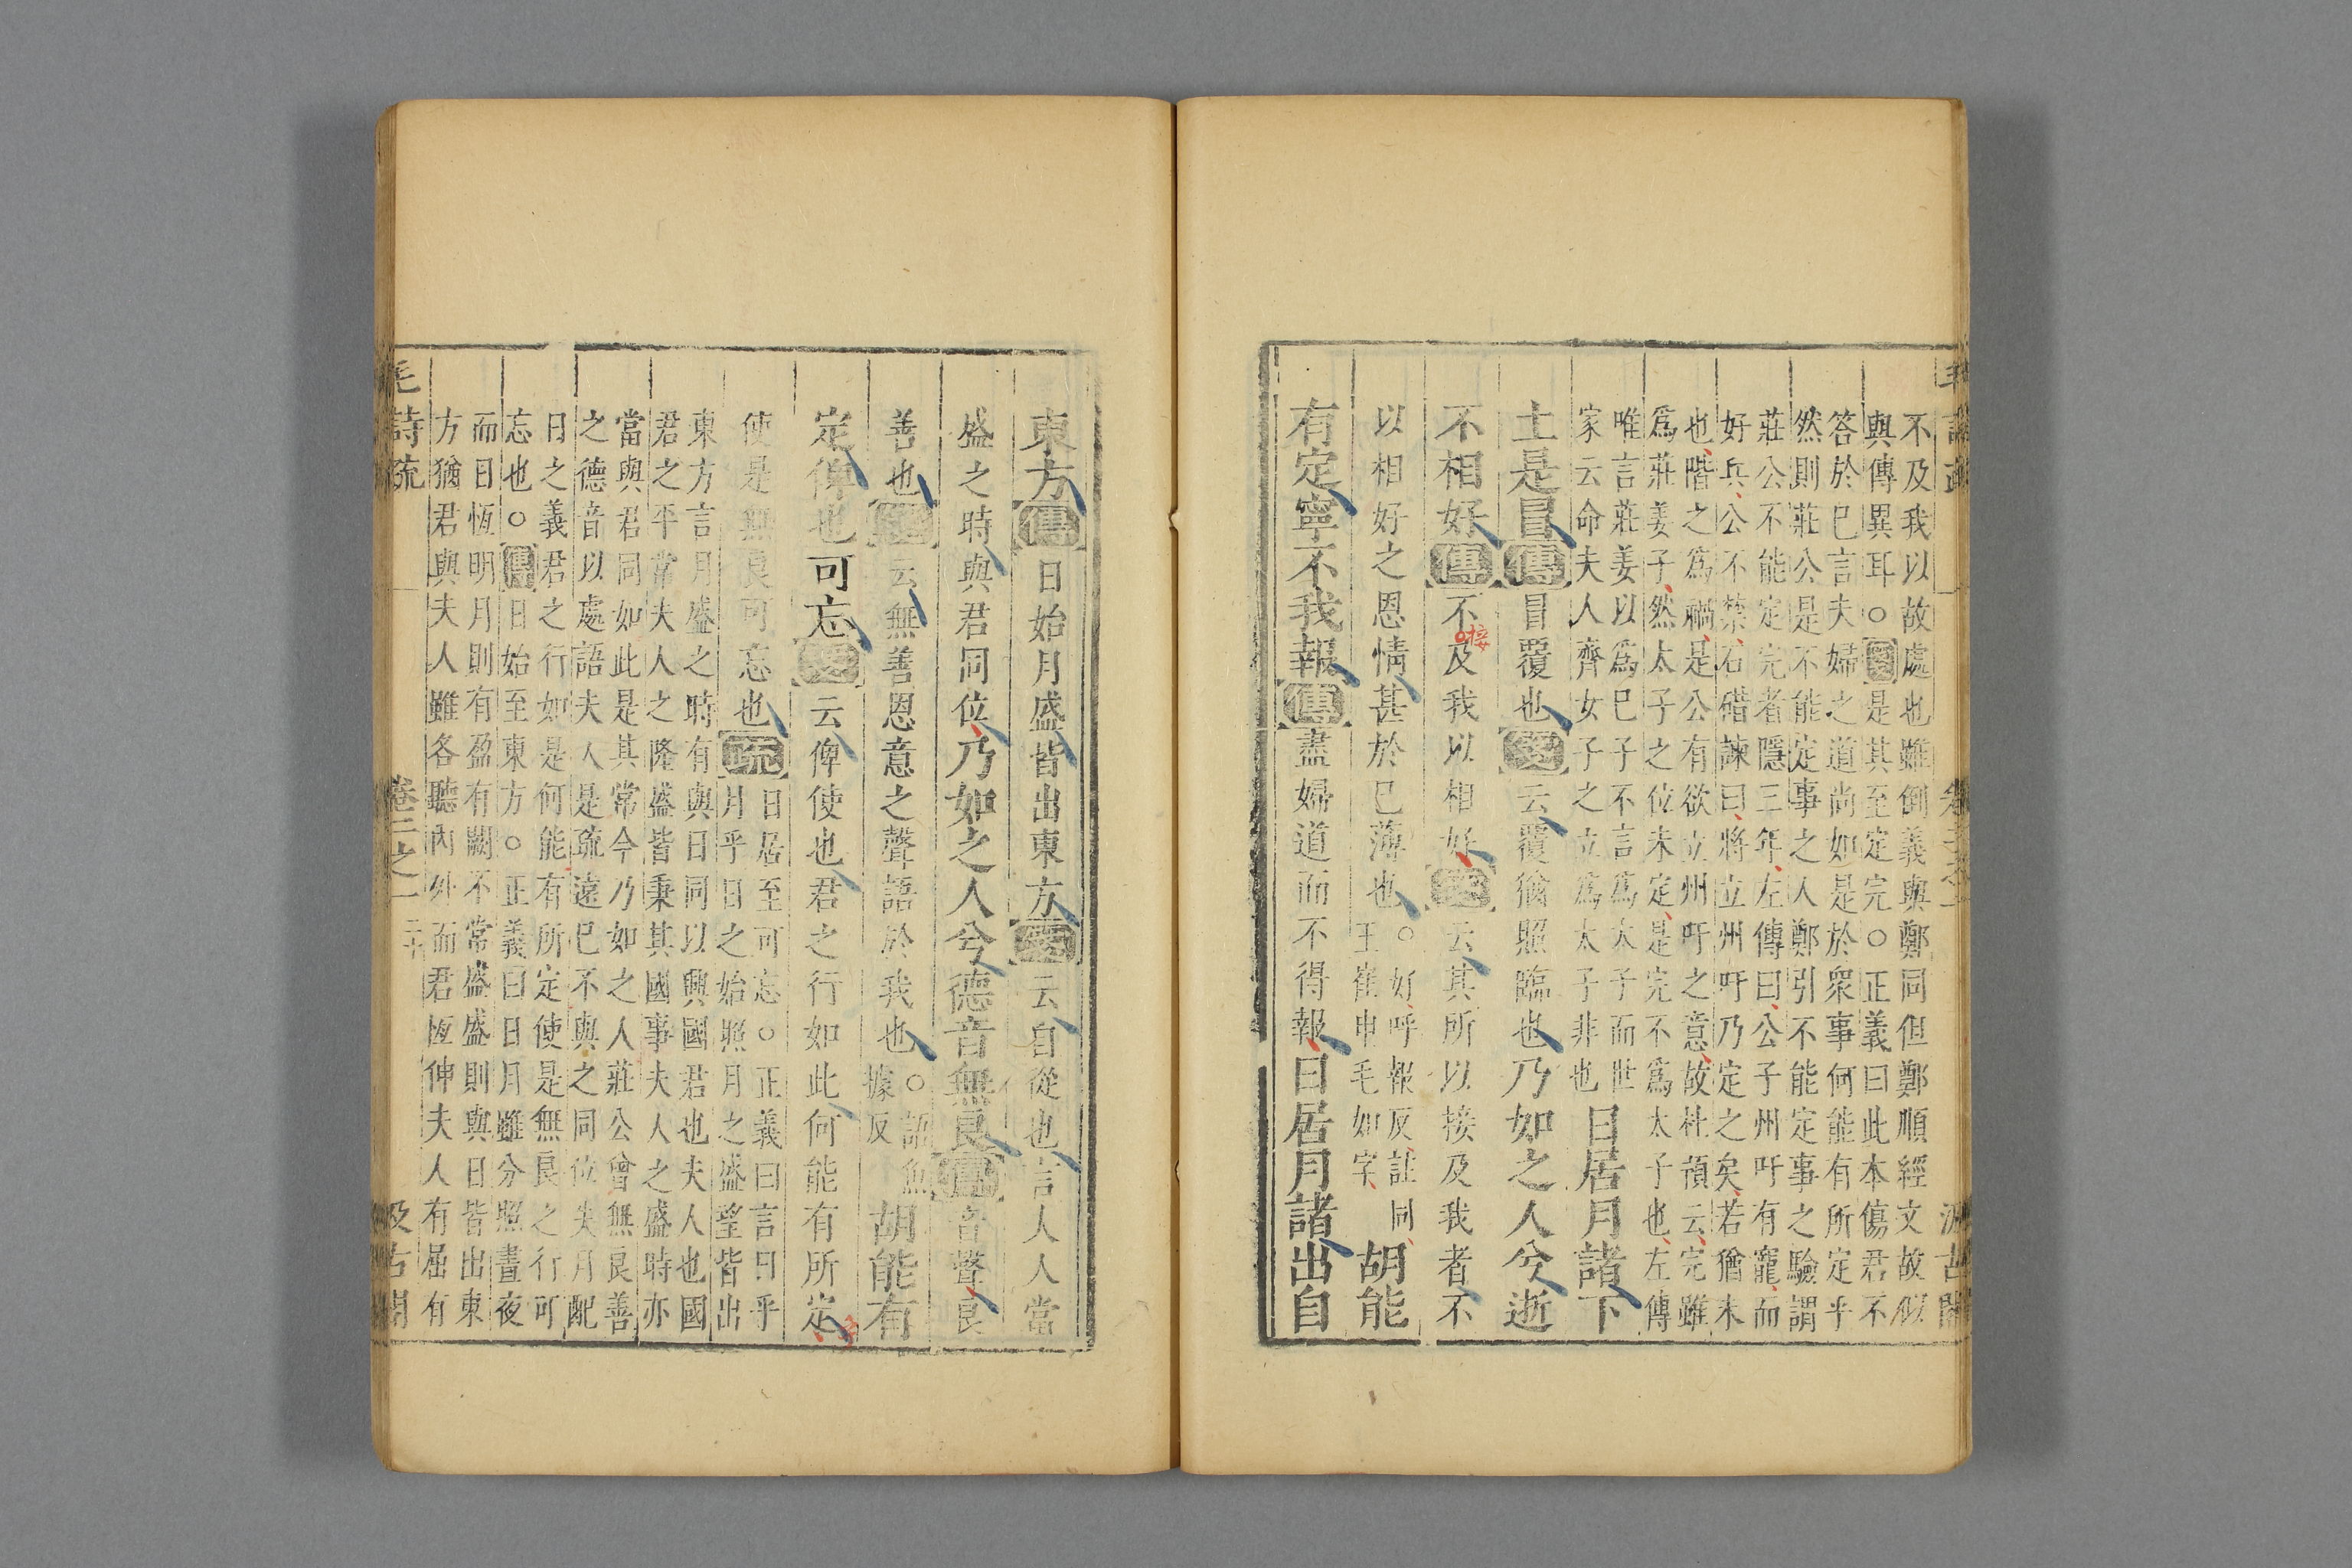 毛詩疏 卷二之一 汲古閣
不及我以故處也雖倒義與鄭同但鄭順經文故似
與傳異耳○箋是其至定完○正義曰此本傷君不
答於巳言夫婦之道尚如是於衆事何能有所定乎
然則莊公是不能定事之人鄭引不能定事之驗謂
莊公不能定完者隱三年左傳曰公子州吁有寵而
好兵公不禁石碏諫曰將立州吁乃定之矣若猶未
也階之爲禍是公有欲立州吁之意故杜預云完雖
爲莊姜子然太子之位未定是完不爲太子也左傳
唯言莊姜以爲巳子不言爲太子而世
家云命夫人齊女子之立爲太子非也
日居月諸下
土是冒傳冒覆也箋云覆猶照臨也乃如之人兮逝
不相好傳不及我以相好箋云其所以接及我者不
接
以相好之恩情甚於巳薄也○好呼報反註同
王崔申毛如字
胡能
有定寧不我報傳盡婦道而不得報日居月諸出自
東方傳日始月盛皆出東方箋云自從也言人人當
盛之時與君同位乃如之人兮德音無良傳音聲良
善也箋云無善恩意之聲語於我也○語魚
據反
胡能有
定俾也可忘箋云俾使也君之行如此何能有所定
使是無良可忘也疏日居至可忘○正義曰言日乎
月乎日之始照月之盛望皆出
東方言月盛之時有與日同以興國君也夫人也國
君之平常夫人之隆盛皆秉其國事夫人之盛時亦
當與君同如此是其常今乃如之人莊公曾無良善
之德音以處語夫人是疏遠巳不與之同位失月配
日之義君之行如是何能有所定使是無良之行可
忘也○傳日始至東方○正義曰日月雖分照晝夜
而日恆明月則有盈有闕不常盛盛則與日皆出東
方猶君與夫人雖各聽內外而君恆伸夫人有屈有
毛詩疏 卷二之一 二十 汲古閣